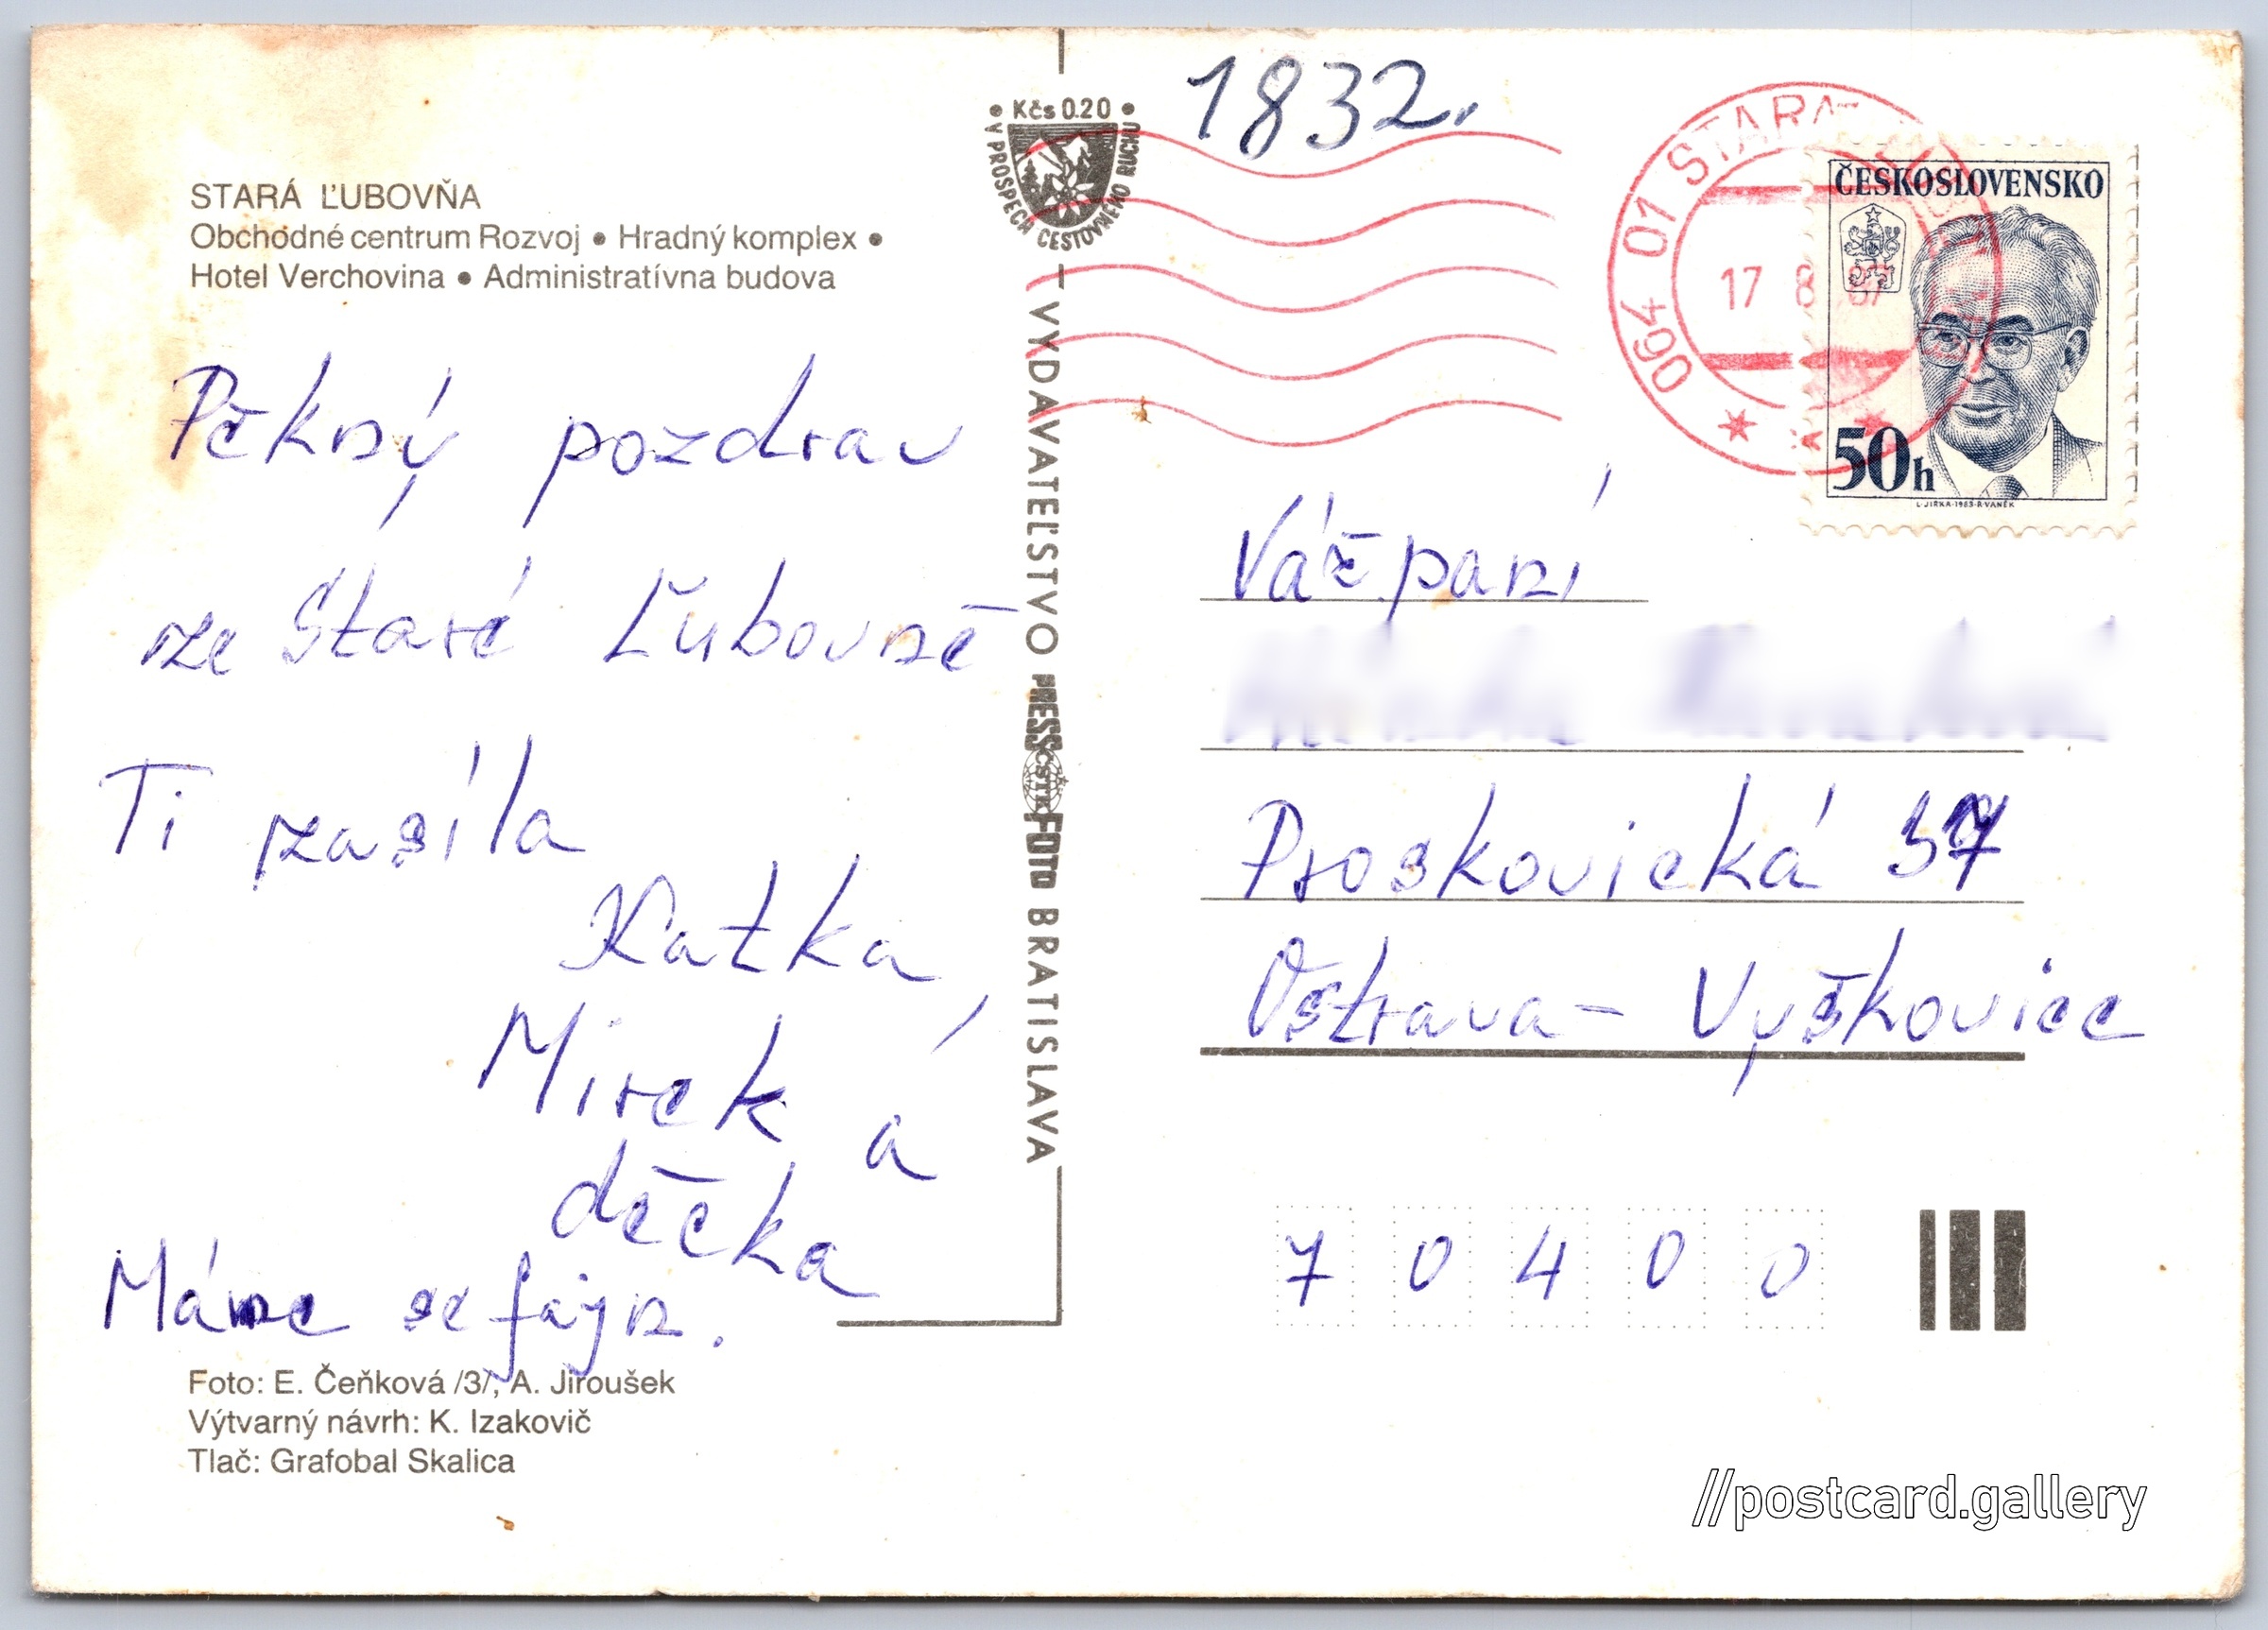 STARÁ ĽUBOVŇA
Obchodné centrum Rozvoj • Hradný komplex •
Hotel Verchovina • Administratívna budova
Pěkný pozdrav
ze Staré Ľubovně
Ti zasílá
Katka,
Mirek a
děčka
Máme se fajn.
Foto: E. Čeňková /3/, A. Jiroušek
Výtvarný návrh: K. Izakovič
Tlač: Grafobal Skalica
• Kčs 0.20 •
V PROSPECH CESTOVNÉHO RUCHU
VYDAVATEĽSTVO PRESSFOTO BRATISLAVA
ČSTK
1832.
064 01 STARÁ
17 8 87
ČESKOSLOVENSKO
50h
L. JIRKA · 1983 · R. VANĚK
Váž. paní
Proskovická 37
Ostrava - Vyškovice
7 0 4 0 0
//postcard.gallery